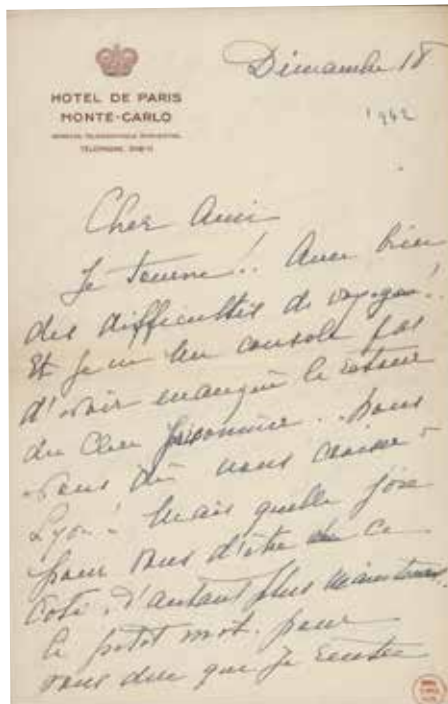 Dimanche 18
HOTEL DE PARIS
MONTE-CARLO
1942
Cher Ami
Je tourne!! Avec bien
des difficultés de voyages!
Et je ne m'en console pas
d'avoir manqué le retour
du Cher prisonnier.. nous
avons dû nous croiser à
Lyon! Mais quelle joie
pour vous d'être de ce
côté. d'autant plus maintenant
ce petit mot. pour
vous dire que je rentre